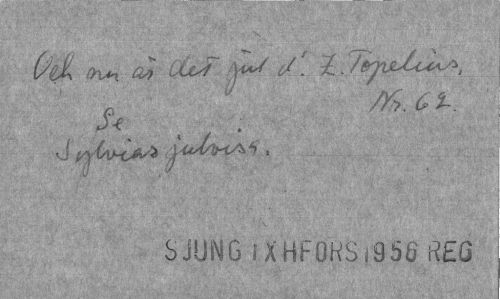 Och nu är det jul d. Z. Topelius.
Nr. 62.
Se
Sylvias julvisa.
SJUNG IX HFORS 1956 REG